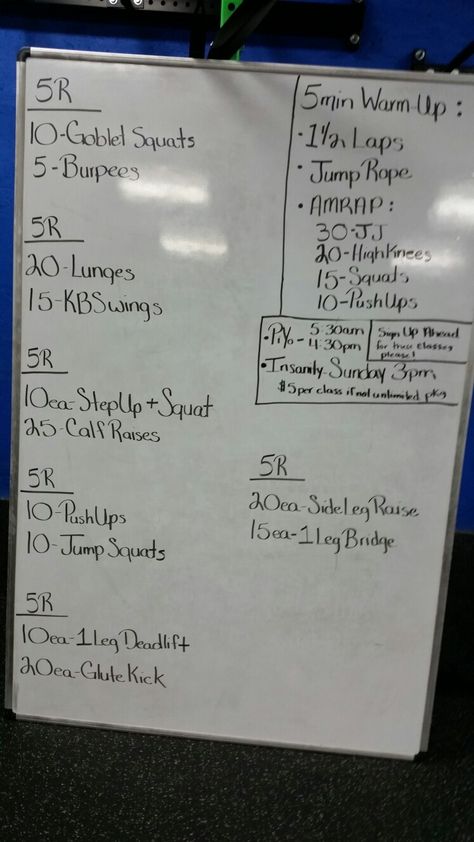 5R
10-Goblet Squats
5-Burpees
5R
20-Lunges
15-KBSwings
5R
10ea-StepUp+Squat
25-Calf Raises
5R
10-PushUps
10-Jump Squats
5R
10ea-1LegDeadlift
20ea-Glute Kick
5min Warm-Up:
• 1½ Laps
• Jump Rope
• AMRAP:
30-JJ
20-HighKnees
15-Squats
10-PushUps
5:30am
4:30pm
Sign Up Ahead
for these classes
please!
•Insanity-Sunday 3pm
$5 per class if not unlimited pkg
5R
20ea-SideLegRaise
15ea-1LegBridge